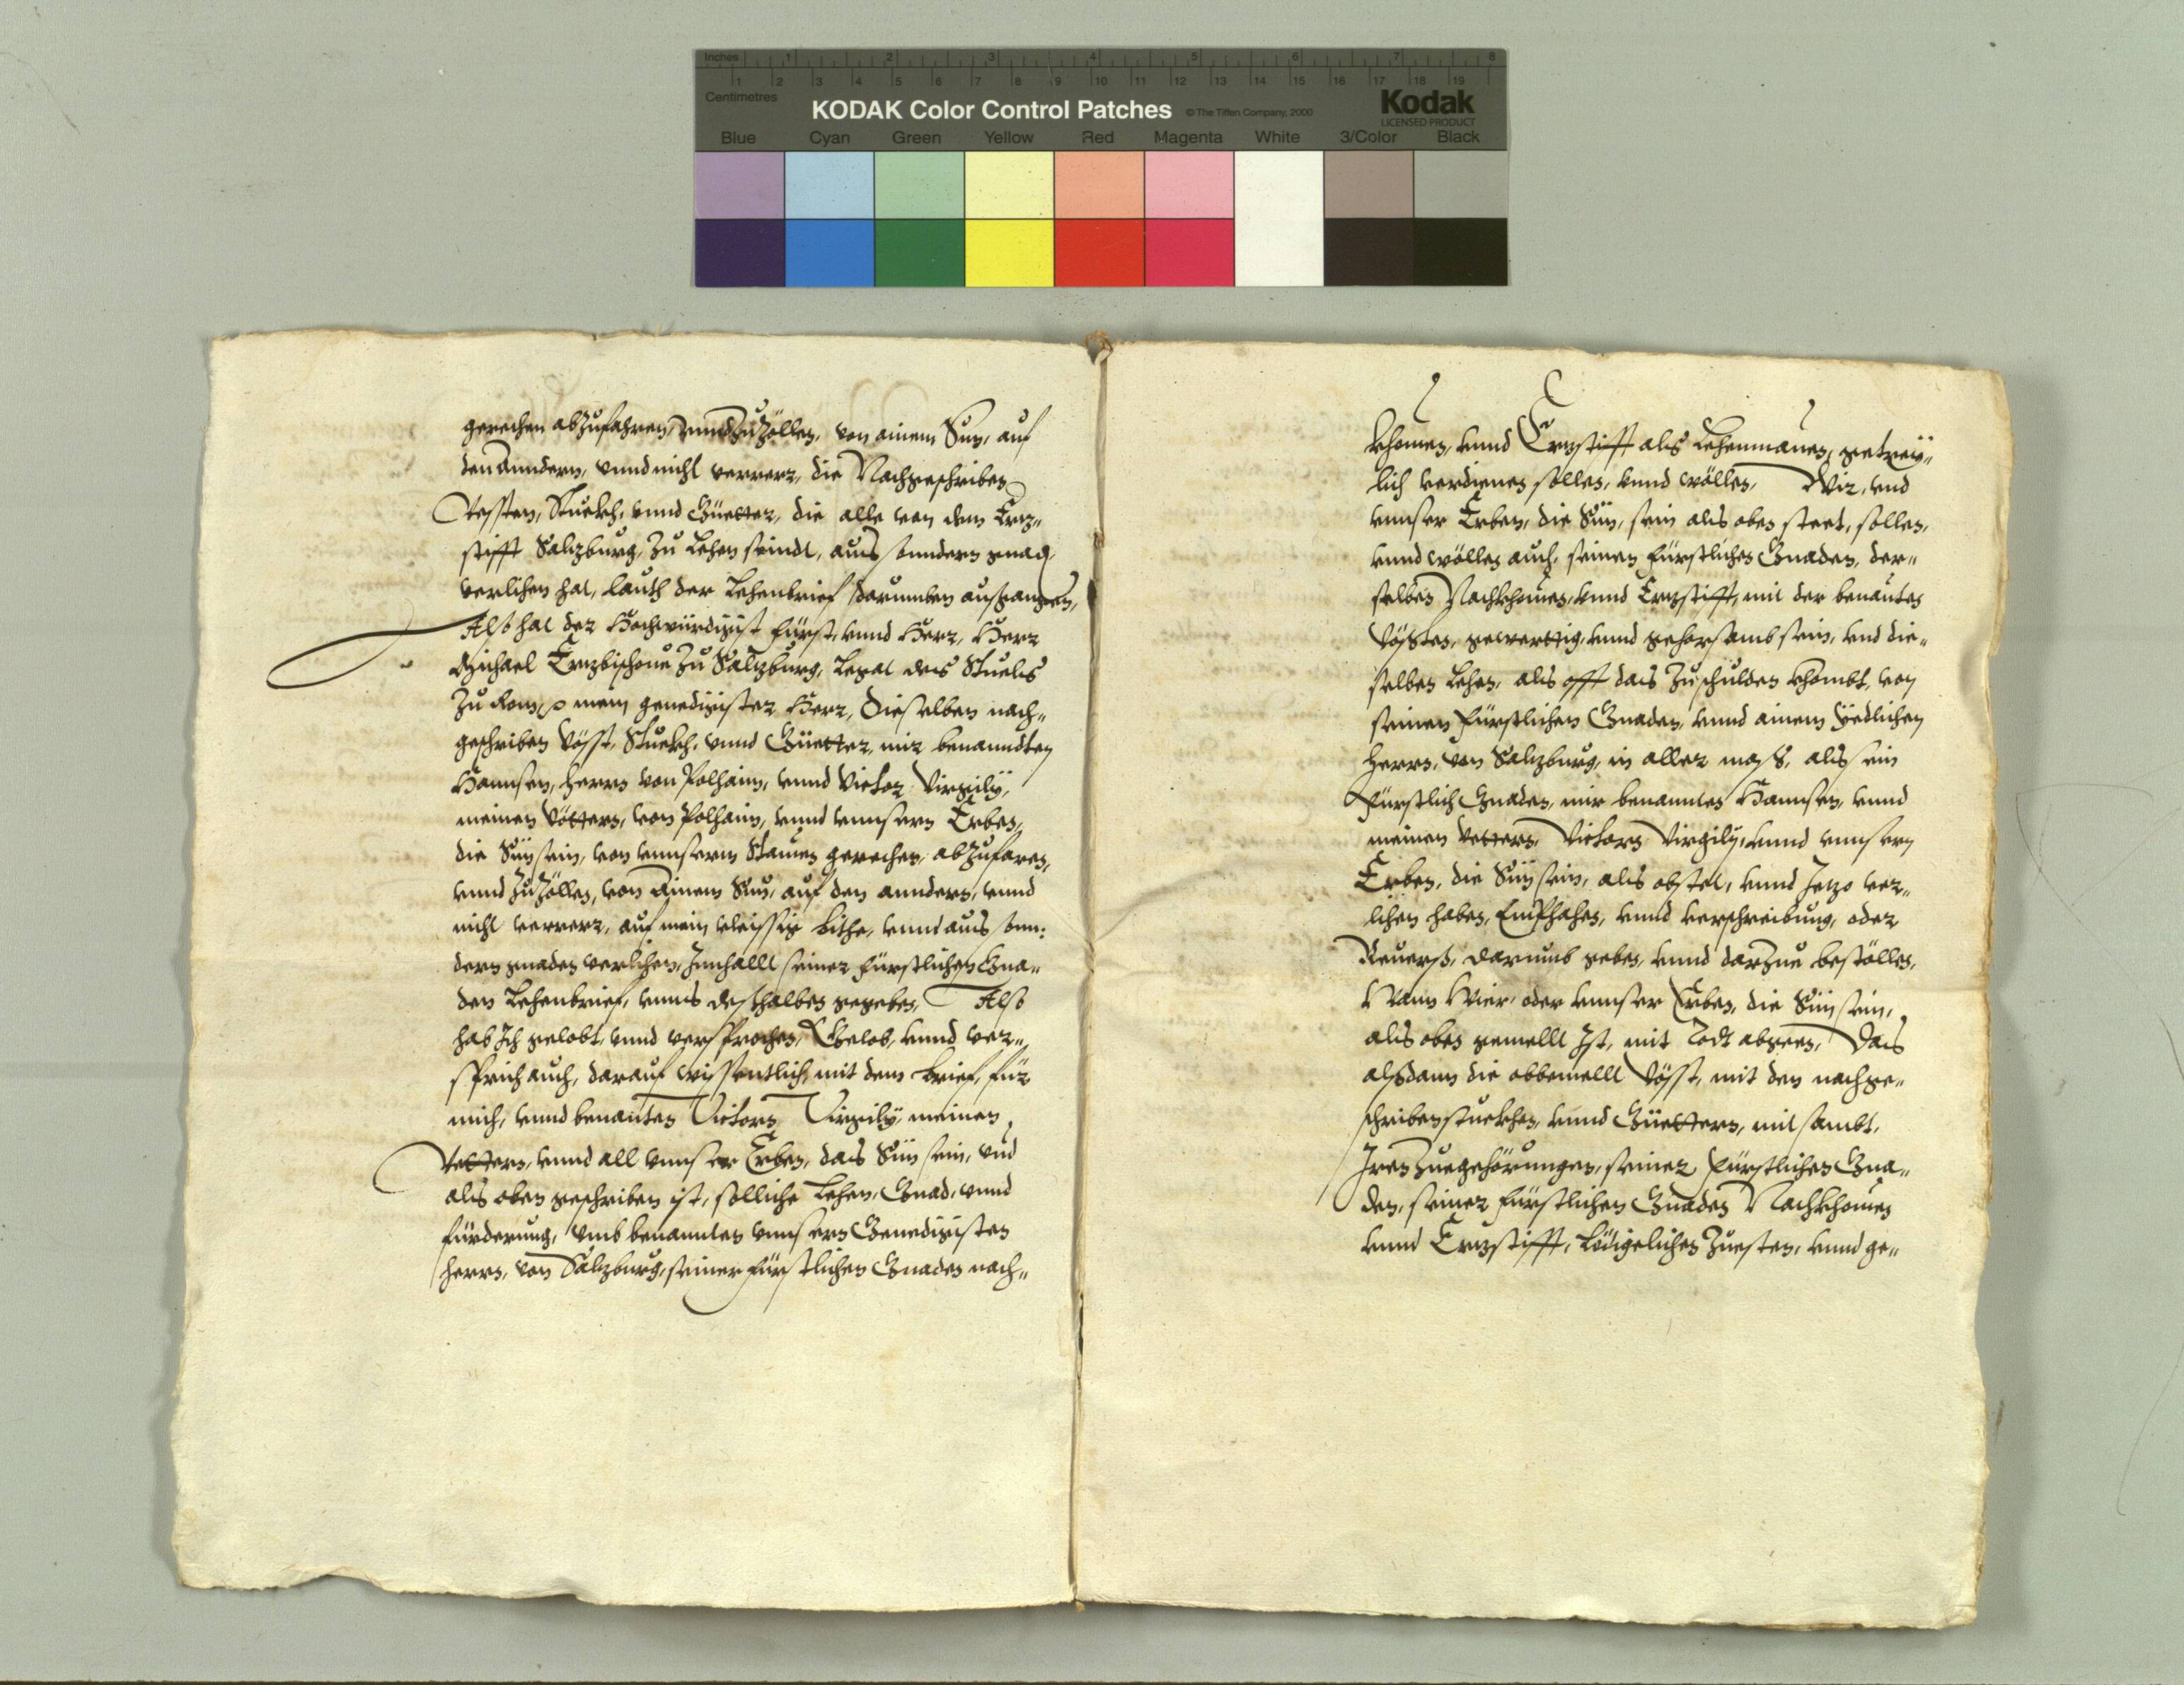 Inches 1 2 3 4 5 6 7 8
1 2 3 4 5 6 7 8 9 10 11 12 13 14 15 16 17 18 19
Centimetres
KODAK Color Control Patches © The Tiffen Company, 2000 Kodak
LICENSED PRODUCT
Blue Cyan Green Yellow Red Magenta White 3/Color Black
gerechen abzufahren, vnnd zuzöllen, von ainem Sun, auf
den anndern, vnnd nicht verrer, die Nachgeschriben
Vessten, Stuckh, vnnd Güetter, die alle von dem Ertz„
stifft Saltzburg, zu Lehen seindt, aus sonndern gnad
verlihen hat, lauth der Lehenbrief darumben außgangen,
Also hat der Hochwürdigist Fürst, vnnd Herr, Herr
Michael Ertzbischoue zu Saltzburg, Legat des Stuels
zu Rom, mein genedigister Herr, Dieselben nach„
geschriben Vösst, Stuckh, vnnd Güetter, mir benanndten
Hannsen, Herrn von Polhaim, vnnd Victor Virgily,
meinen Vöttern, von Polhaim, vnnd vnnsern Erben,
die Sün sein, von vnnserm Stamen gerechen, abzufaren,
vnnd zuzöllen, von Ainem Sun, auf den anndern, vnnd
nicht verrer, auf mein vleissig bithe, vnnd aus sonn:
dern gnaden verlihen, Innhallt seiner Fürstlichen Gna„
den Lehenbrief, vnns deßhalben gegeben, Also
hab Ich gelobt, vnnd versprochen, Gelob, vnnd ver„
sprich auch, darauf wissentlich, mit dem brief, für
mich, vnnd benanten Victorn Virgily, meinen
Vettern, vnnd all vnnser Erben, das Sün sein, vnd
als oben geschriben ist, solliche Lehen, Gnad, vnnd
fürderung, vmb benannten vnnsern Genedigisten
Herrn, von Saltzburg, seiner Fürstlichen Gnaden nach„
khomen, vnnd Ertzstifft als Lehenmanen, getreü„
lich verdienen sollen, vnnd wöllen, Wir, vnd
vnnser Erben, die Sün, sein als oben steet, sollen,
vnnd wöllen auch, seinen Fürstlichen Gnaden, der„
selben Nachkhomen, vnnd Ertzstifft, mit der benanten
Vössten, gewerttig, vnnd gehorsamb sein, vnd die„
selben Lehen, als offt das zuschulden khombt, von
seinen Fürstlichen Gnaden, vnnd ainem yedlichen
Herrn, von Saltzburg, in aller maß, als sein
Fürstlich Gnaden, mir benannten Hannsen, vnnd
meinen Vettern, Victorn Virgily, vnnd vnnsern
Erben, die Sün sein, als obstet, vnnd Jetzo ver„
lihen haben, Emphahen, vnnd verschreibung, oder
Reuerß, darumb geben, vnnd darzue bestöllen,
Wann Wier, oder vnnser Erben, die Sün sein,
als oben gemellt Ist, mit Todt abgeen, Das
alßdann die obbemellt Vösst, mit den nachge„
schriben stuckhen, vnnd Güettern, mit sambt,
Iren zuegehörungen, seiner Fürstlichen Gna„
den, seiner Fürstlichen Gnaden Nachkhomen
vnnd Ertzstifft, Ledigelichen zuesten, vnnd ge„